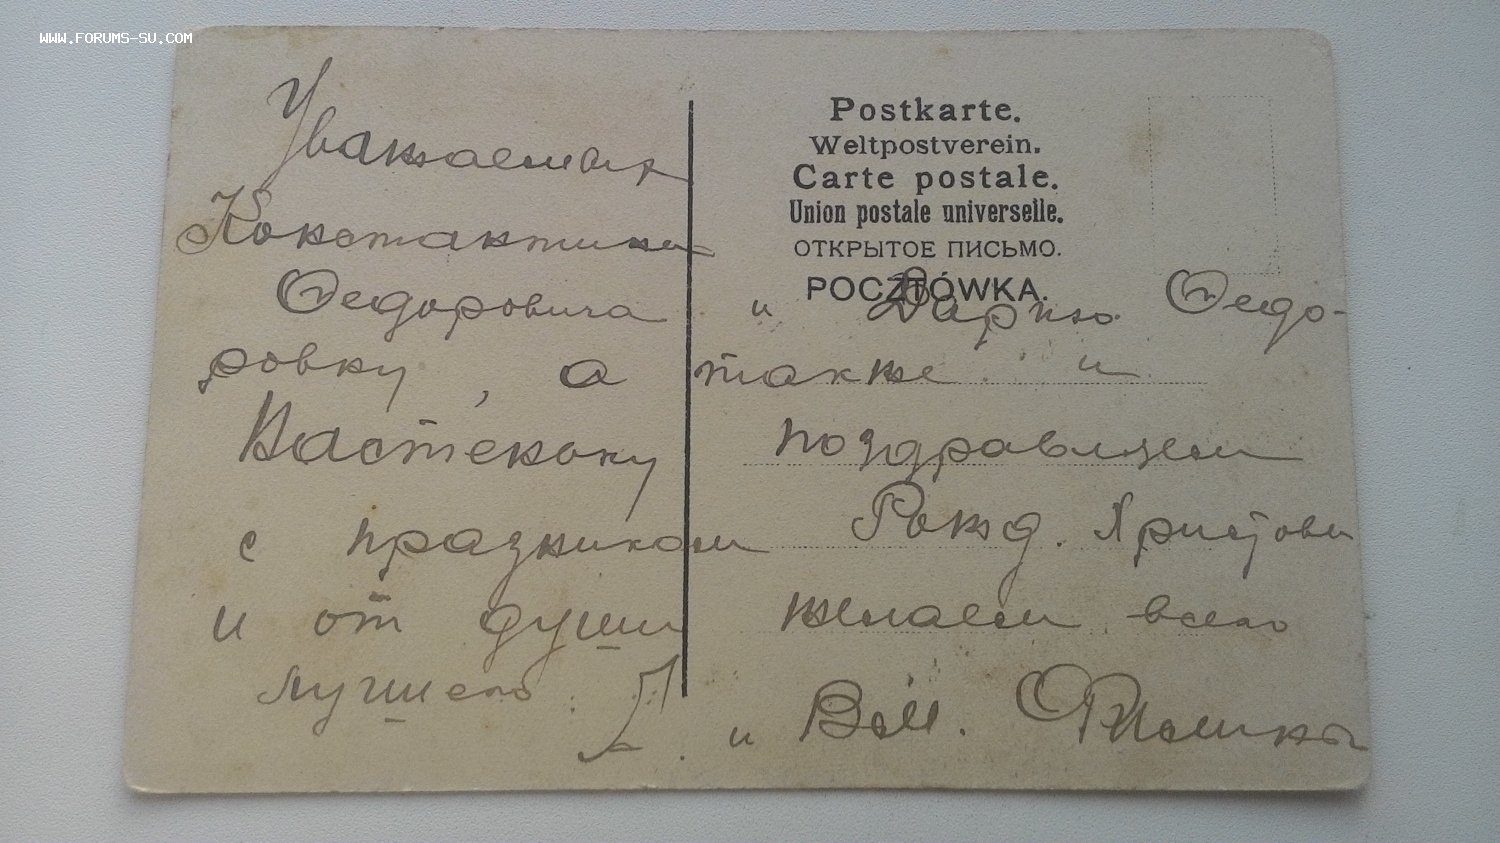 WWW.FORUMS-SU.COM
Postkarte.
Weltpostverein.
Carte postale.
Union postale universelle.
ОТКРЫТОЕ ПИСЬМО.
POCZTÓWKA.
Уважаемых
Константина
Федоровича и Дарью Федо-
ровну, а также и
Настеньку поздравляем
с праздником Рожд. Христовы
и от души желаем всего
лучшего. и